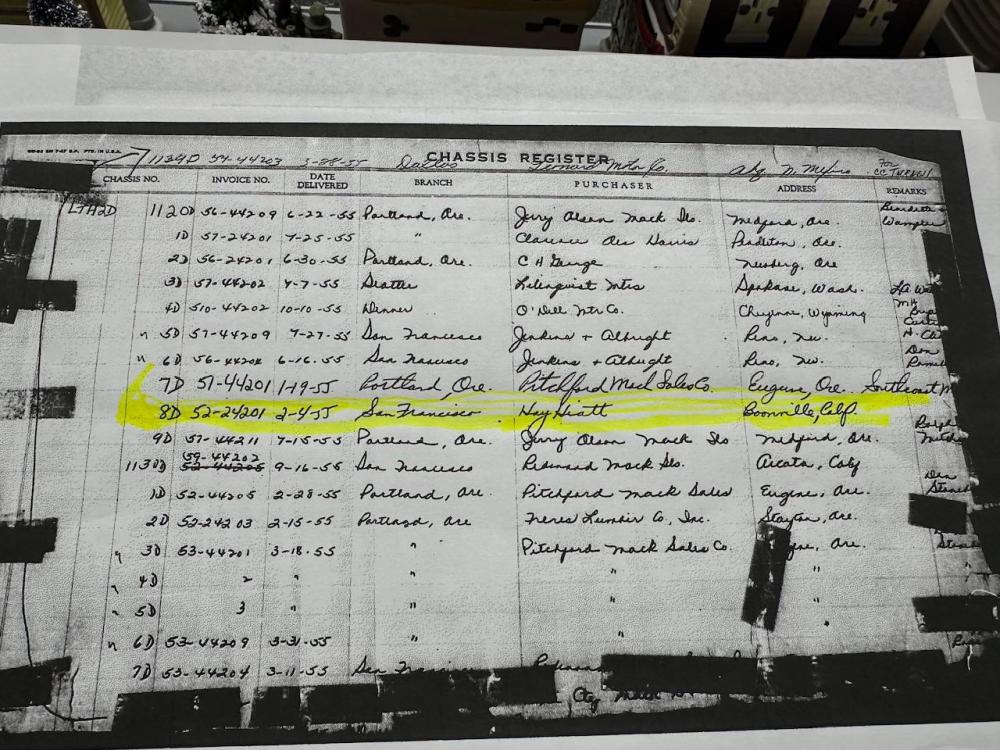 1139D 54-44203 3-28-55 Dallas CHASSIS REGISTER Leonard Motor Co. For
CHASSIS NO. INVOICE NO. DATE DELIVERED BRANCH PURCHASER ADDRESS REMARKS
LTH2D 1120D 56-44209 6-22-55 Portland, Ore. Jerry Olson Mack Medford, Ore.
1D 57-24201 7-25-55 " Clarence Harris Pendleton, Ore. Wampler
2D 56-24201 6-30-55 Portland, Ore. C H George Newberg, Ore
3D 57-44202 4-7-55 Seattle Mtrs Spokane, Wash.
4D 510-44202 10-10-55 Denver O'Dell Mtr Co. Cheyenne, Wyoming
" 5D 57-44209 7-27-55 San Francisco Jenkins + Albright Reno, Nev.
" 6D 56-44202 6-16-55 San Francisco Jenkins + Albright Reno, Nev. Don
7D 51-44201 1-19-55 Portland, Ore. Pitchford Mack Sales Co. Eugene, Ore. Southcoast M
8D 52-24201 2-4-55 San Francisco Hay Hiatt Boonville, Calif.
9D 57-44211 7-15-55 Portland, Ore. Jerry Olson Mack Medford, Ore. Ralph
59-44202
1130D 52-44205 9-16-55 San Francisco Redwood Mack Arcata, Calif
1D 52-44205 2-28-55 Portland, Ore. Pitchford Mack Sales Eugene, Ore.
2D 52-24203 2-15-55 Portland, Ore Freres Lumber Co, Inc. Stayton, Ore.
" 3D 53-44201 3-18-55 " Pitchford Mack Sales Co. Ore.
" 4D 2 " " " "
" 5D 3 " " " "
" 6D 53-44209 3-31-55 " "
7D 53-44204 3-11-55 San Francisco